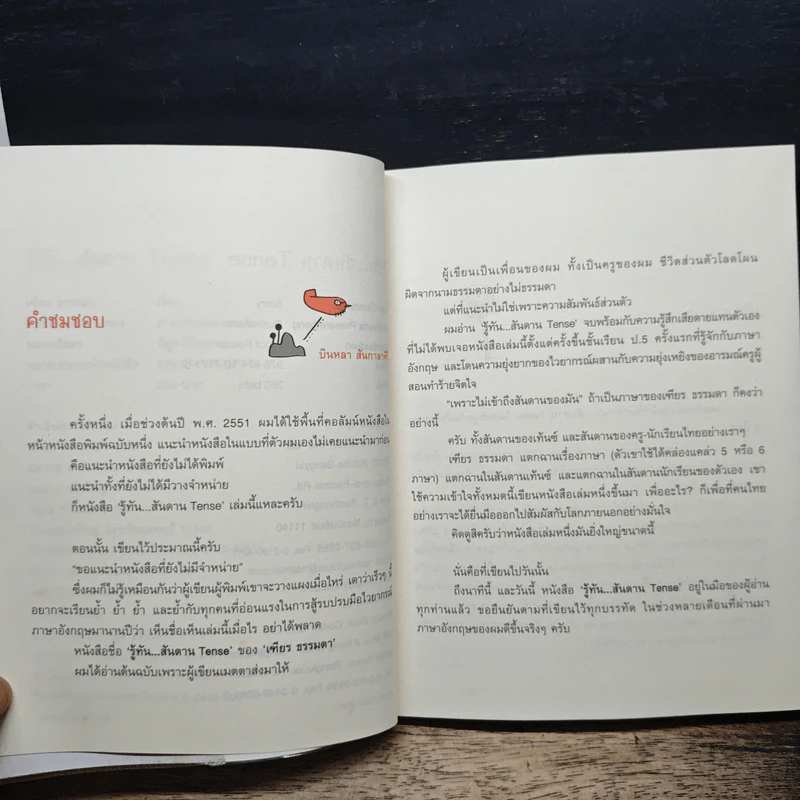 คำชมชอบ
บินหลา สันกาลาคีรี
ครั้งหนึ่ง เมื่อช่วงต้นปี พ.ศ. 2551 ผมได้ใช้พื้นที่คอลัมน์หนังสือใน
หน้าหนังสือพิมพ์ฉบับหนึ่ง แนะนำหนังสือในแบบที่ตัวผมเองไม่เคยแนะนำมาก่อน
คือแนะนำหนังสือที่ยังไม่ได้พิมพ์
แนะนำทั้งที่ยังไม่ได้มีวางจำหน่าย
ก็หนังสือ ‘รู้ทัน...สันดาน Tense’ เล่มนี้แหละครับ
ตอนนั้น เขียนไว้ประมาณนี้ครับ
“ขอแนะนำหนังสือที่ยังไม่มีจำหน่าย”
ซึ่งผมก็ไม่รู้เหมือนกันว่าผู้เขียนผู้พิมพ์เขาจะวางแผงเมื่อไหร่ เดาว่าเร็วๆ นี้
อยากจะเรียนย้ำ ย้ำ ย้ำ และย้ำกับทุกคนที่อ่อนแรงในการสู้รบปรบมือไวยากรณ์
ภาษาอังกฤษมานานปีว่า เห็นชื่อเห็นเล่มนี้เมื่อไร อย่าได้พลาด
หนังสือชื่อ ‘รู้ทัน...สันดาน Tense’ ของ ‘เฑียร ธรรมดา’
ผมได้อ่านต้นฉบับเพราะผู้เขียนเมตตาส่งมาให้
ผู้เขียนเป็นเพื่อนของผม ทั้งเป็นครูของผม ชีวิตส่วนตัวโลดโผน
ผิดจากนามธรรมดาอย่างไม่ธรรมดา
แต่ที่แนะนำไม่ใช่เพราะความสัมพันธ์ส่วนตัว
ผมอ่าน ‘รู้ทัน...สันดาน Tense’ จบพร้อมกับความรู้สึกเสียดายแทนตัวเอง
ที่ไม่ได้พบเจอหนังสือเล่มนี้ตั้งแต่ครั้งขึ้นชั้นเรียน ป.5 ครั้งแรกที่รู้จักกับภาษา
อังกฤษ และโดนความยุ่งยากของไวยากรณ์ผสานกับความยุ่งเหยิงของอารมณ์ครูผู้
สอนทำร้ายจิตใจ
“เพราะไม่เข้าถึงสันดานของมัน” ถ้าเป็นภาษาของเฑียร ธรรมดา ก็คงว่า
อย่างนี้
ครับ ทั้งสันดานของเท้นซ์ และสันดานของครู-นักเรียนไทยอย่างเราๆ
เฑียร ธรรมดา แตกฉานเรื่องภาษา (ตัวเขาใช้ได้คล่องแคล่ว 5 หรือ 6
ภาษา) แตกฉานในสันดานเท้นซ์ และแตกฉานในสันดานนักเรียนของตัวเอง เขา
ใช้ความเข้าใจทั้งหมดนี้เขียนหนังสือเล่มหนึ่งขึ้นมา เพื่ออะไร? ก็เพื่อที่คนไทย
อย่างเราจะได้ยื่นมือออกไปสัมผัสกับโลกภายนอกอย่างมั่นใจ
คิดดูสิครับว่าหนังสือเล่มหนึ่งมันยิ่งใหญ่ขนาดนี้
นั่นคือที่เขียนไปวันนั้น
ถึงนาทีนี้ และวันนี้ หนังสือ ‘รู้ทัน...สันดาน Tense’ อยู่ในมือของผู้อ่าน
ทุกท่านแล้ว ขอยืนยันตามที่เขียนไว้ทุกบรรทัด ในช่วงหลายเดือนที่ผ่านมา
ภาษาอังกฤษของผมดีขึ้นจริงๆ ครับ